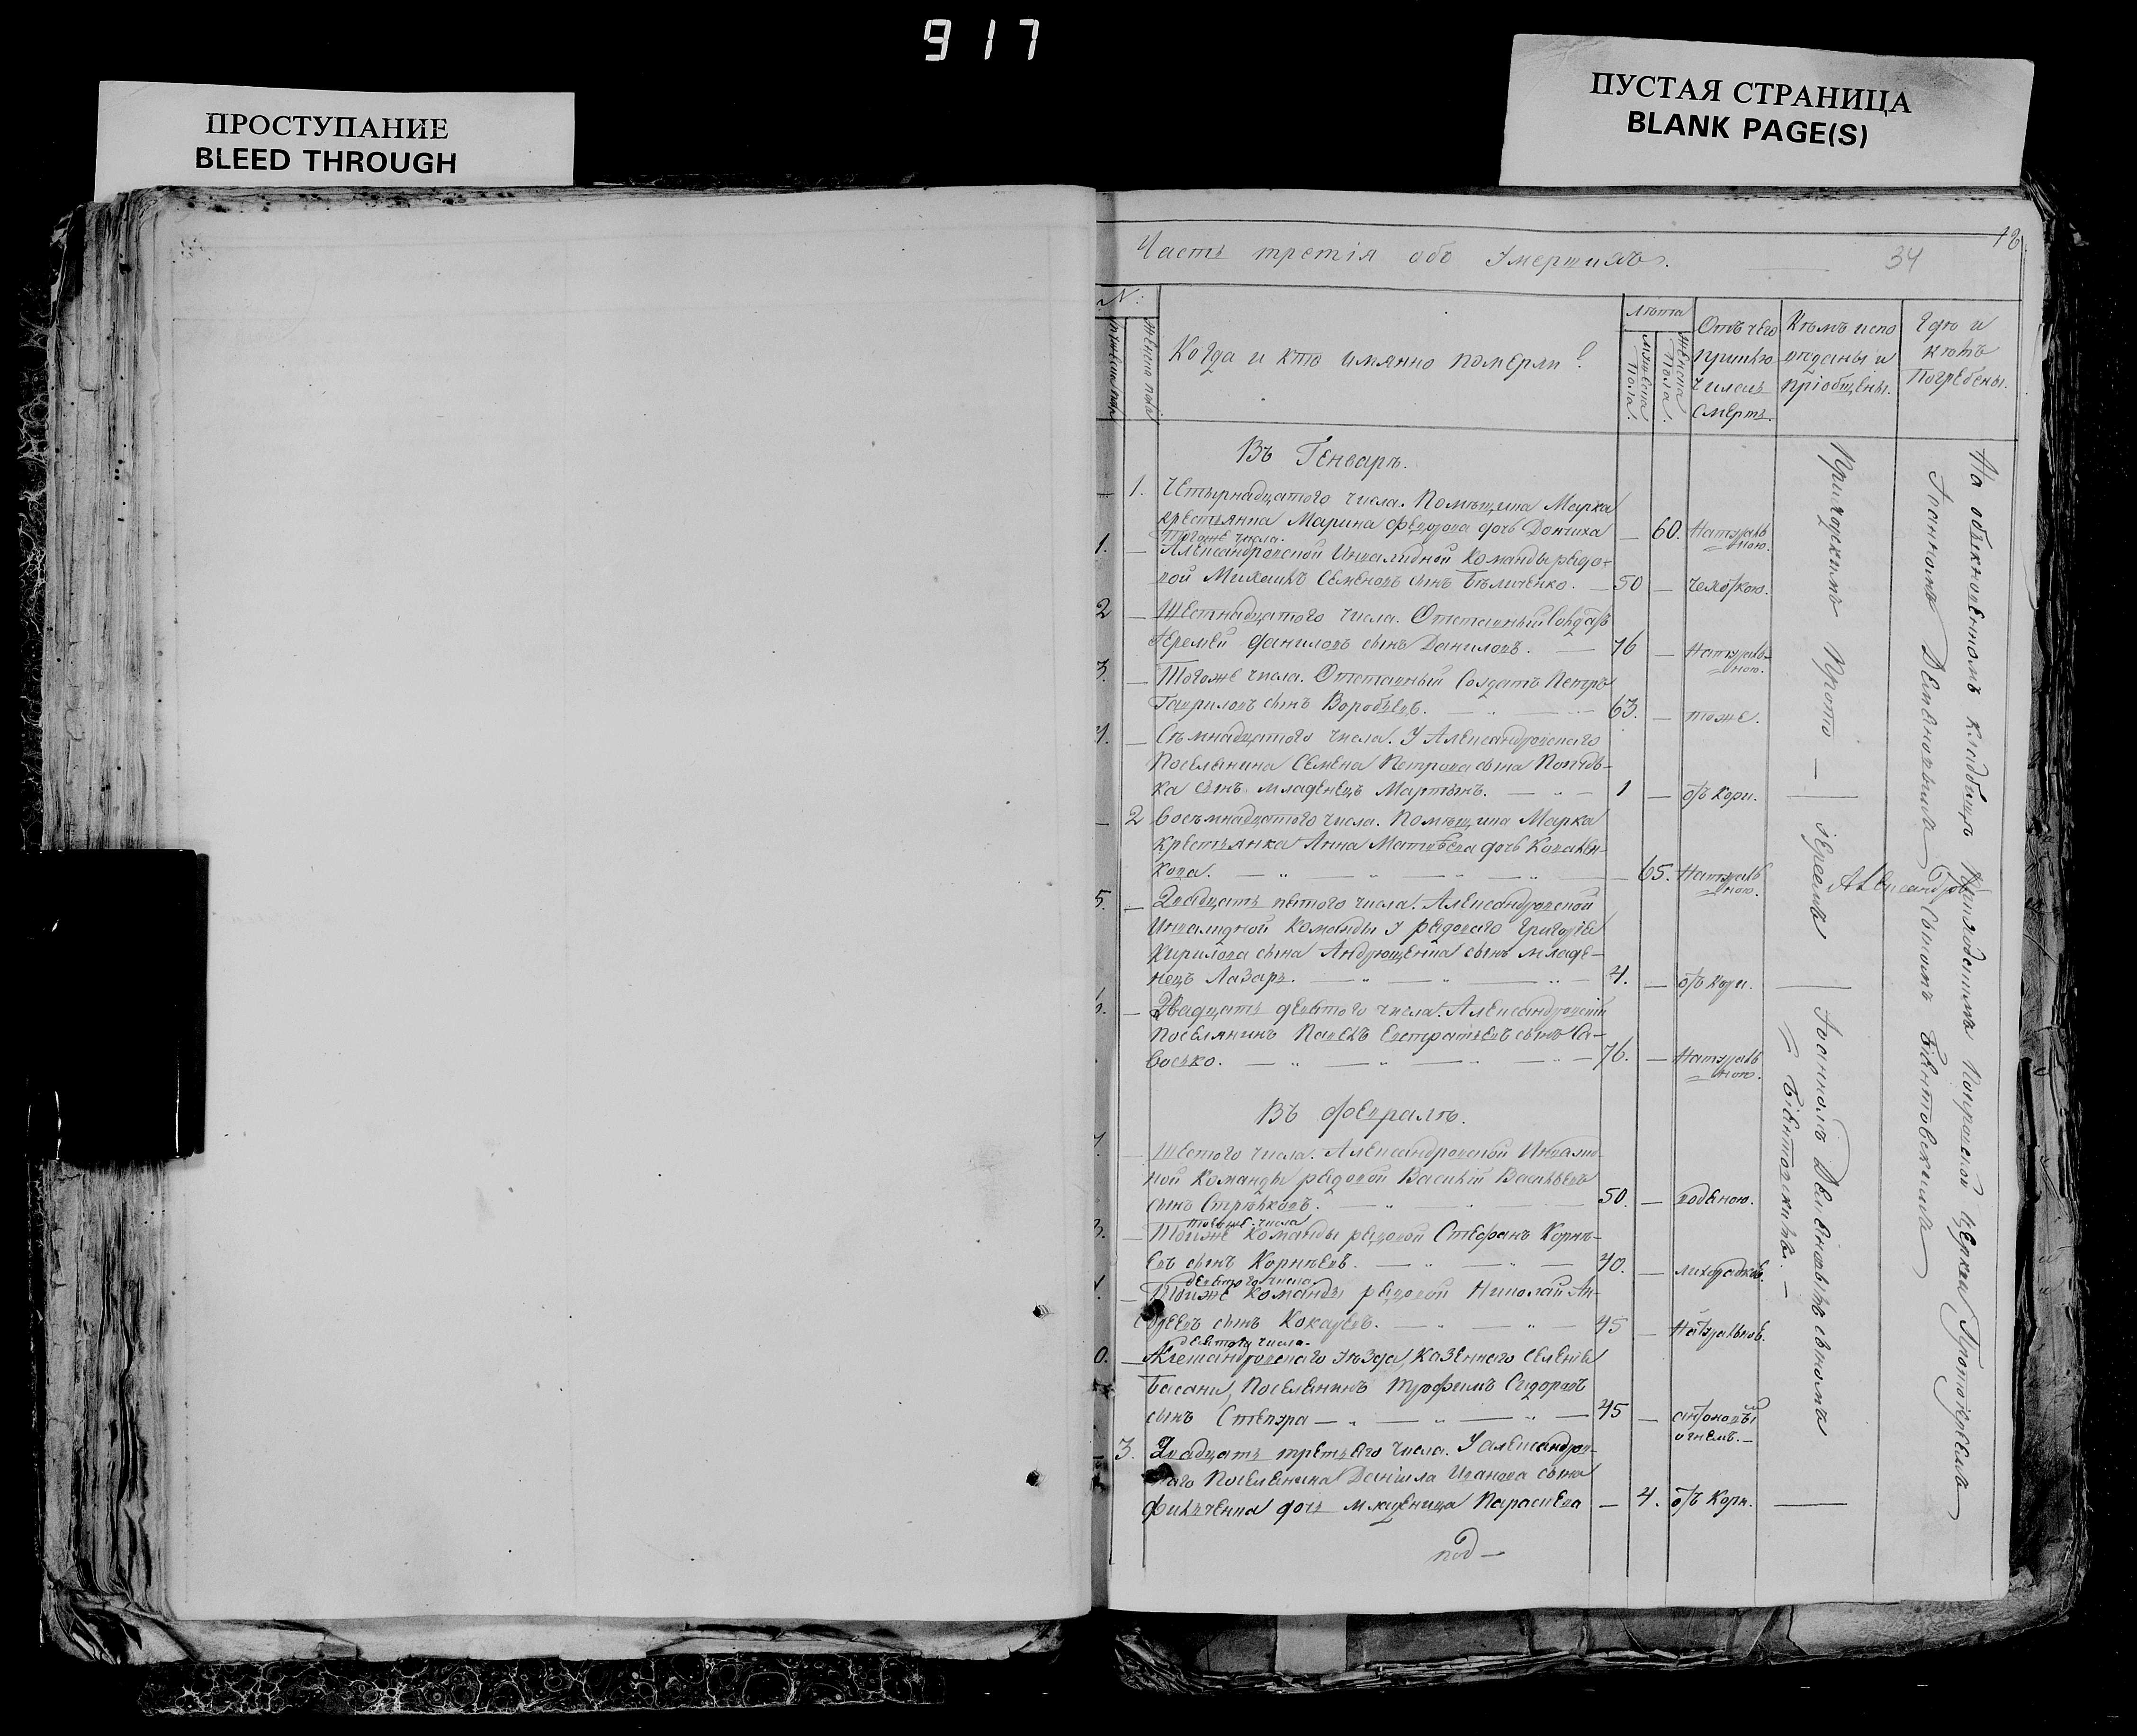 917
ПРОСТУПАНИЕ
BLEED THROUGH
ПУСТАЯ СТРАНИЦА
BLANK PAGE(S)
Часть третія объ Умершихъ.
34
№:
Когда и кто имянно померли?
Лѣта
мужеска пола.
женска пола.
Отъ чего
приклю
чилась
смерть.
Кѣмъ испо
вѣданы и
пріобщены.
Гдѣ и
кѣмъ
Погребены.
Въ Генварѣ.
1. Четырнадцатого числа. Помѣщика Марка
крестьянка Марина Федорова дочь Дончиха — 60. Натураль
ною.
Тогоже числа.
1. — Александровской Инвалидной Команды рядо-
вой Михаилъ Семеновъ сынъ Бѣличенко. — 50 — чехоткою.
2 — Шестнадцатого числа. Отставный Солдатъ
Еремей Даниловъ сынъ Даниловъ. — 76 — Натураль-
ною.
3. — Тогоже числа. Отставный Солдатъ Петръ
Гавриловъ сынъ Воробьевъ. — 63. — тоже.
4. — Съмнадцатого числа. У Александровскаго
Поселянина Семена Петрова сына
ка сынъ младенецъ Мартынъ. — 1 — отъ Кори.
— 2 Восѣмнадцатого числа. Помѣщика Марка
Крестьянка Анна Матвѣева дочь Ковален-
кова. — 65. Натураль
ною.
5. — Двадцать пятого числа. Александровской
Инвалидной Команды у рядоваго Григорія
Кирилова сына Андрющенка сынъ младе-
нецъ Лазарь. — 4. — отъ Кори.
6. — Двадцать девятого числа. Александровскій
Поселянинъ Павелъ Евстратьевъ сынъ Са-
восько. — 76. — Натураль
ною.
Въ Февралѣ.
7. — Шестого числа. Александровской Инвалид-
ной Команды рядовой Василій Васильевъ
сынъ Стрѣлковъ. — 50. — водяною.
тогоже числа
— Тойже Команды рядовой Стефанъ Корнѣ-
евъ сынъ Корнѣевъ. — 40. — лихорадкою.
девятого числа
— Тойже Команды рядовой Николай Ан-
дреевъ сынъ — 45 — Натуральною.
девятого числа.
0. — Александровскаго уѣзда, казеннаго селенія
Басани, Поселянинъ Трофимъ Сидоровъ
сынъ Степура — 45 — антоновымъ
огнемъ. —
3. Двадцать третьяго числа. У александров-
скаго Поселянина Даніила Иванова сына
дочь младеница Параскева — 4. отъ Кори.
под —
Приходскимъ Прото — іереемъ Александро
Іоанномъ Демьяновымъ сыномъ
Бѣнтовскимъ. —
На обыкновенномъ кладбищѣ Приходскимъ Покровской Церкви Протоіереемъ
Іоанномъ Демьяновымъ сыномъ Бѣнтовскимъ